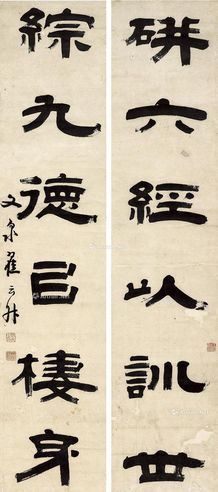 研六經以訓世
綜九德㠯棲身
文泉翟云升